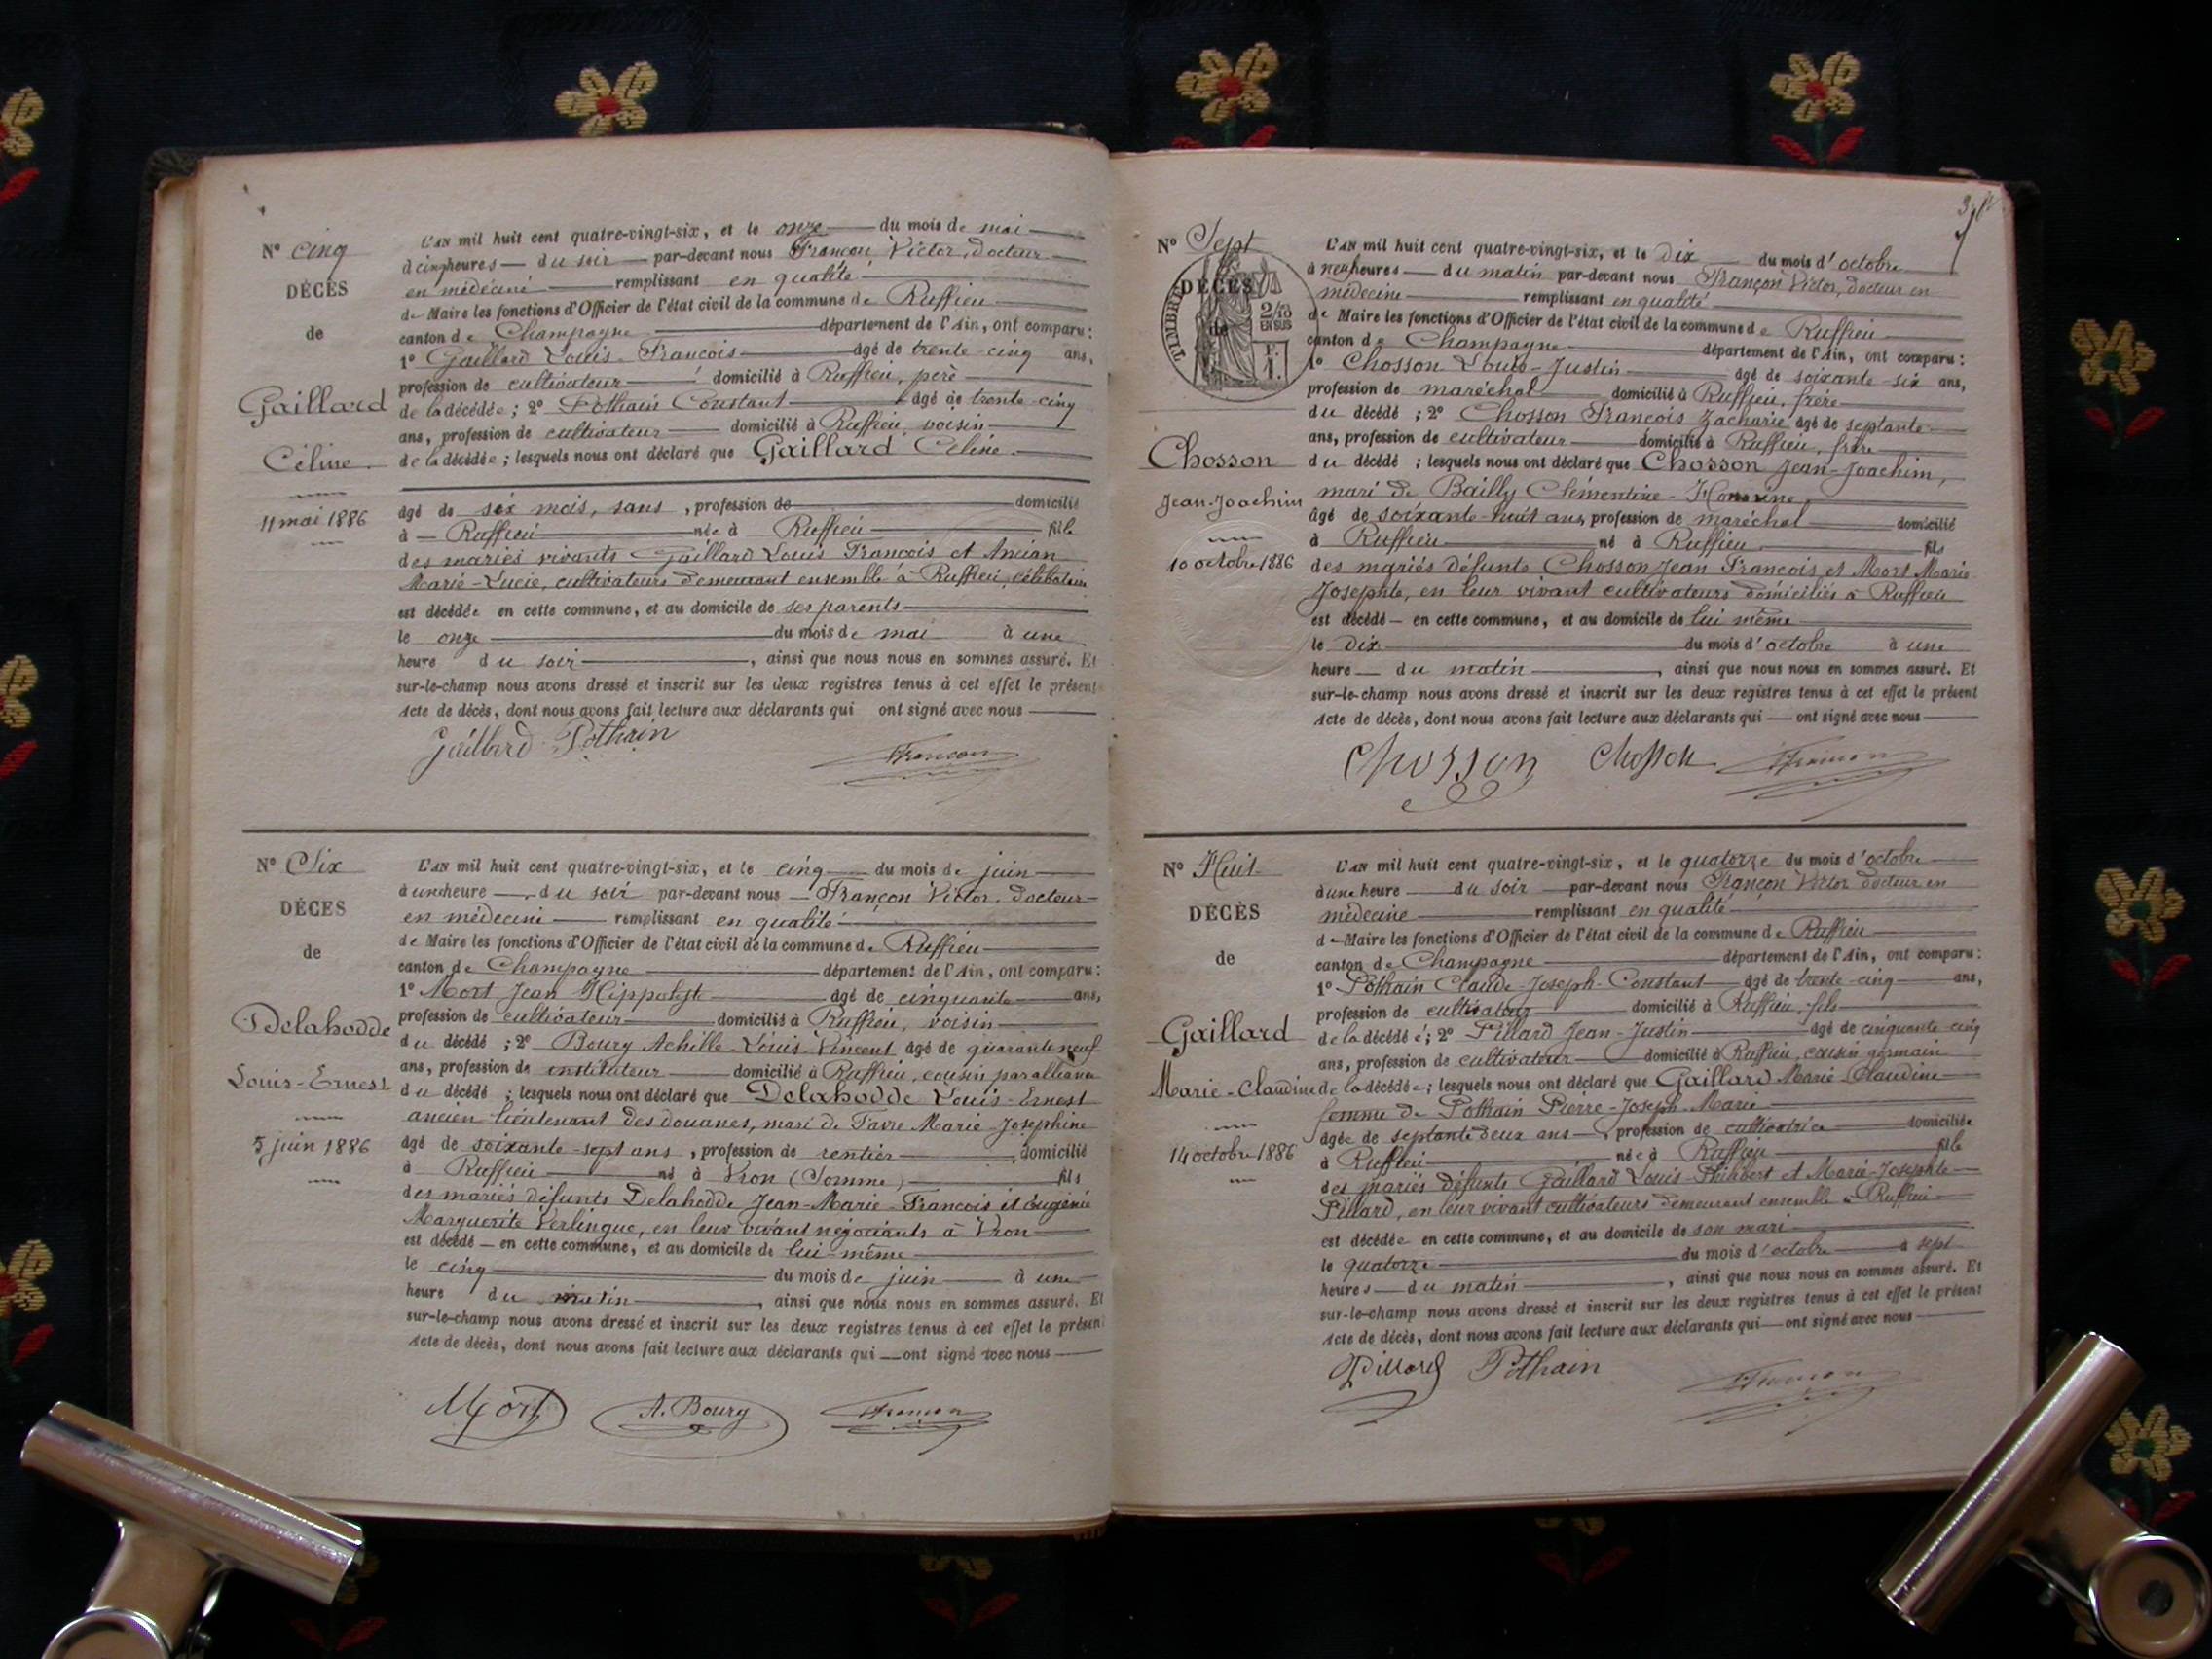 N° cinq
DÉCÈS
de
Gaillard
Céline
11 mai 1886
L'AN mil huit cent quatre-vingt-six, et le onze du mois de mai
à cinq heures du soir par-devant nous Françon Victor, docteur
en médecine remplissant en qualité
de Maire les fonctions d'Officier de l'état civil de la commune de Ruffieu
canton de Champagne département de l'Ain, ont comparu :
1° Gaillard Louis-François âgé de trente-cinq ans,
profession de cultivateur domicilié à Ruffieu, père
de la décédée ; 2° Pothain Constant âgé de trente-cinq
ans, profession de cultivateur domicilié à Ruffieu, voisin
de la décédée ; lesquels nous ont déclaré que Gaillard Céline
âgé de six mois, sans , profession de domicilié
à Ruffieu née à Ruffieu fille
des mariés vivants Gaillard Louis François et Ancian
Marie-Lucie, cultivateurs demeurant ensemble à Ruffieu, célibataire
est décédée en cette commune, et au domicile de ses parents
le onze du mois de mai à une
heure du soir , ainsi que nous nous en sommes assuré. Et
sur-le-champ nous avons dressé et inscrit sur les deux registres tenus à cet effet le présent
Acte de décès, dont nous avons fait lecture aux déclarants qui ont signé avec nous
Gaillard Pothain Françon
N° Six
DÉCÈS
de
Delahodde
Louis-Ernest
5 juin 1886
L'AN mil huit cent quatre-vingt-six, et le cinq du mois de juin
à une heure du soir par-devant nous Françon Victor, docteur
en médecine remplissant en qualité
de Maire les fonctions d'Officier de l'état civil de la commune de Ruffieu
canton de Champagne département de l'Ain, ont comparu :
1° Mort Jean Hippolyte âgé de cinquante ans,
profession de cultivateur domicilié à Ruffieu, voisin
du décédé ; 2° Boury Achille Louis Vincent âgé de quarante neuf
ans, profession de instituteur domicilié à Ruffieu, cousin par alliance
du décédé ; lesquels nous ont déclaré que Delahodde Louis-Ernest
ancien lieutenant des douanes, mari de Favre Marie-Josephine
âgé de soixante-sept ans , profession de rentier domicilié
à Ruffieu né à Vron (Somme) fils
des mariés défunts Delahodde Jean-Marie-François et Eugénie
Marguerite Verlingue, en leur vivant négociants à Vron
est décédé en cette commune, et au domicile de lui-même
le cinq du mois de juin à une
heure du matin , ainsi que nous nous en sommes assuré. Et
sur-le-champ nous avons dressé et inscrit sur les deux registres tenus à cet effet le présent
Acte de décès, dont nous avons fait lecture aux déclarants qui ont signé avec nous
Mort A. Boury Françon
N° Sept
DÉCÈS
de
TIMBRE
2/10
EN SUS
Chosson
Jean-Joachim
10 octobre 1886
L'AN mil huit cent quatre-vingt-six, et le dix du mois d'octobre
à neuf heures du matin par-devant nous Françon Victor, docteur en
médecine remplissant en qualité
de Maire les fonctions d'Officier de l'état civil de la commune de Ruffieu
canton de Champagne département de l'Ain, ont comparu :
1° Chosson Louis-Justin âgé de soixante-six ans,
profession de maréchal domicilié à Ruffieu, frère
du décédé ; 2° Chosson François Zacharie âgé de septante
ans, profession de cultivateur domicilié à Ruffieu, frère
du décédé ; lesquels nous ont déclaré que Chosson Jean-Joachim,
mari de Bailly Clémentine-Honorine,
âgé de soixante-huit ans, profession de maréchal domicilié
à Ruffieu né à Ruffieu fils
des mariés défunts Chosson Jean François et Mort Marie
Josephte, en leur vivant cultivateurs domiciliés à Ruffieu
est décédé en cette commune, et au domicile de lui même
le dix du mois d'octobre à une
heure du matin , ainsi que nous nous en sommes assuré. Et
sur-le-champ nous avons dressé et inscrit sur les deux registres tenus à cet effet le présent
Acte de décès, dont nous avons fait lecture aux déclarants qui ont signé avec nous
Chosson Chosson Françon
N° Huit
DÉCÈS
de
Gaillard
Marie-Claudine
14 octobre 1886
L'AN mil huit cent quatre-vingt-six, et le quatorze du mois d'octobre
à une heure du soir par-devant nous Françon Victor docteur en
médecine remplissant en qualité
de Maire les fonctions d'Officier de l'état civil de la commune de Ruffieu
canton de Champagne département de l'Ain, ont comparu :
1° Pothain Claude-Joseph-Constant âgé de trente-cinq ans,
profession de cultivateur domicilié à Ruffieu, fils
de la décédée ; 2° Pillard Jean-Justin âgé de cinquante cinq
ans, profession de cultivateur domicilié à Ruffieu, cousin germain
de la décédée ; lesquels nous ont déclaré que Gaillard Marie-Claudine
femme de Pothain Pierre-Joseph-Marie
âgée de septante deux ans , profession de cultivatrice domiciliée
à Ruffieu née à Ruffieu fille
des mariés défunts Gaillard Louis-Philibert et Marie-Josephte
Pillard, en leur vivant cultivateurs demeurant ensemble à Ruffieu
est décédée en cette commune, et au domicile de son mari
le quatorze du mois d'octobre à sept
heures du matin , ainsi que nous nous en sommes assuré. Et
sur-le-champ nous avons dressé et inscrit sur les deux registres tenus à cet effet le présent
Acte de décès, dont nous avons fait lecture aux déclarants qui ont signé avec nous
Pillard Pothain Françon